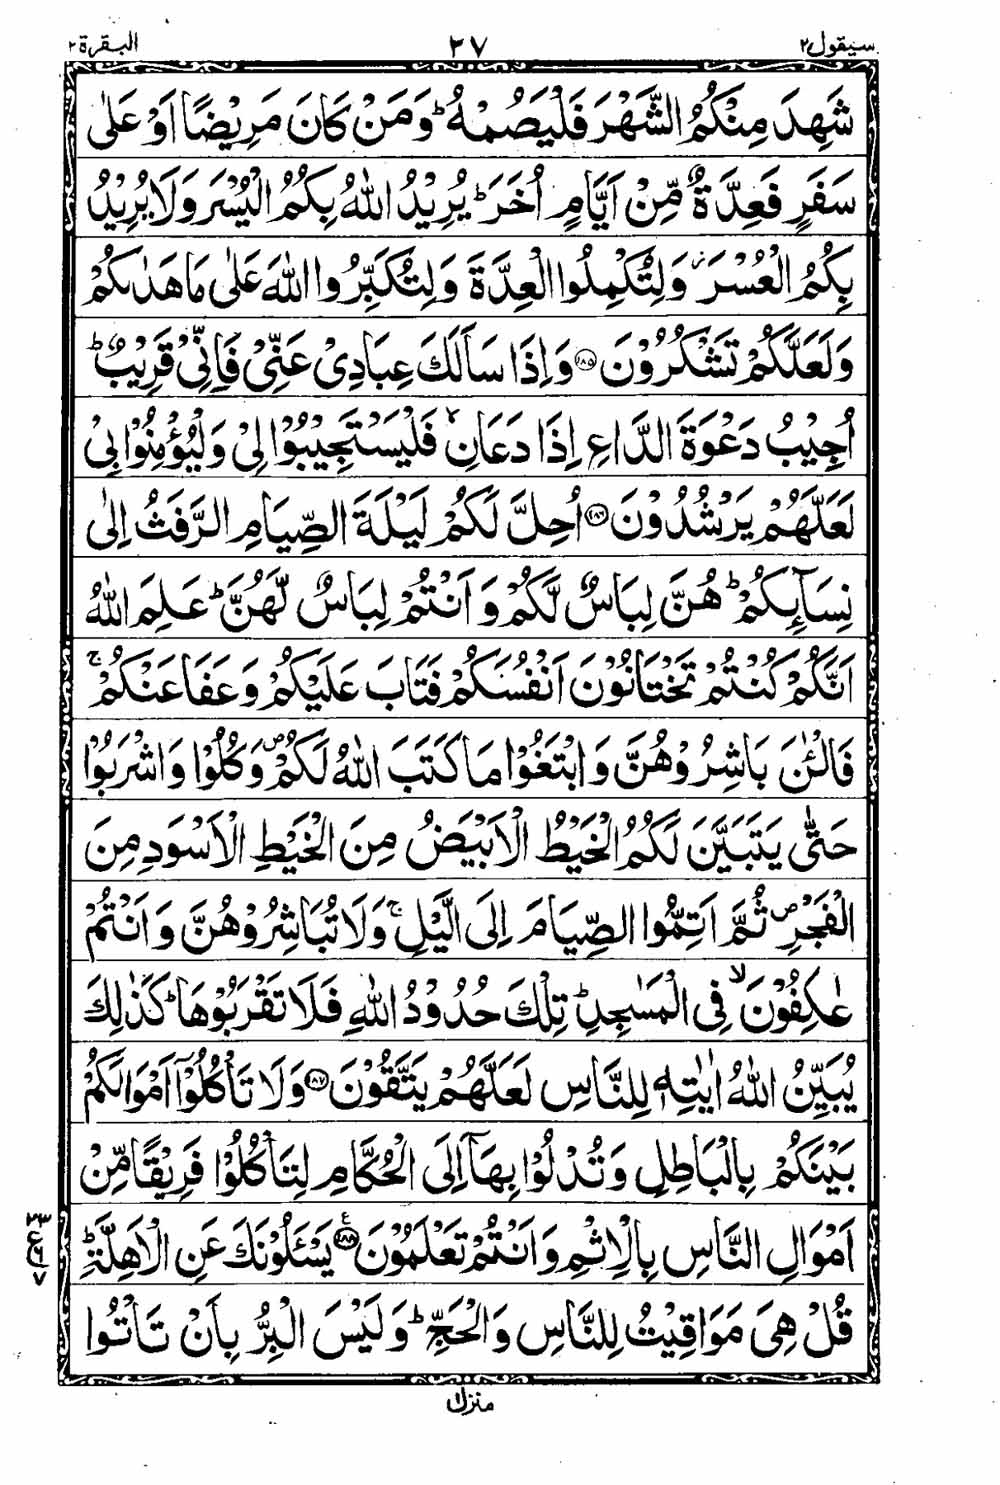 سیقول ۲ ۲۷ البقرة ۲
شَهِدَ مِنْكُمُ الشَّهْرَ فَلْيَصُمْهُ ؕ وَمَنْ كَانَ مَرِيْضًا اَوْ عَلٰى
سَفَرٍ فَعِدَّةٌ مِّنْ اَيَّامٍ اُخَرَ ؕ يُرِيْدُ اللهُ بِكُمُ الْيُسْرَ وَلَا يُرِيْدُ
بِكُمُ الْعُسْرَ ز وَلِتُكْمِلُوا الْعِدَّةَ وَلِتُكَبِّرُوا اللهَ عَلٰى مَا هَدٰىكُمْ
وَلَعَلَّكُمْ تَشْكُرُوْنَ ﴿۱۸۵﴾ وَاِذَا سَاَلَكَ عِبَادِيْ عَنِّيْ فَاِنِّيْ قَرِيْبٌ ؕ
اُجِيْبُ دَعْوَةَ الدَّاعِ اِذَا دَعَانِ ۙ فَلْيَسْتَجِيْبُوْا لِيْ وَلْيُؤْمِنُوْا بِيْ
لَعَلَّهُمْ يَرْشُدُوْنَ ﴿۱۸۶﴾ اُحِلَّ لَكُمْ لَيْلَةَ الصِّيَامِ الرَّفَثُ اِلٰى
نِسَآىِٕكُمْ ؕ هُنَّ لِبَاسٌ لَّكُمْ وَاَنْتُمْ لِبَاسٌ لَّهُنَّ ؕ عَلِمَ اللهُ
اَنَّكُمْ كُنْتُمْ تَخْتَانُوْنَ اَنْفُسَكُمْ فَتَابَ عَلَيْكُمْ وَعَفَا عَنْكُمْ ۚ
فَالْـٰٔنَ بَاشِرُوْهُنَّ وَابْتَغُوْا مَا كَتَبَ اللهُ لَكُمْ ص وَكُلُوْا وَاشْرَبُوْا
حَتّٰى يَتَبَيَّنَ لَكُمُ الْخَيْطُ الْاَبْيَضُ مِنَ الْخَيْطِ الْاَسْوَدِ مِنَ
الْفَجْرِ ص ثُمَّ اَتِمُّوا الصِّيَامَ اِلَى الَّيْلِ ۚ وَلَا تُبَاشِرُوْهُنَّ وَاَنْتُمْ
عٰكِفُوْنَ ۙ فِي الْمَسٰجِدِ ؕ تِلْكَ حُدُوْدُ اللهِ فَلَا تَقْرَبُوْهَا ؕ كَذٰلِكَ
يُبَيِّنُ اللهُ اٰيٰتِهٖ لِلنَّاسِ لَعَلَّهُمْ يَتَّقُوْنَ ﴿۱۸۷﴾ وَلَا تَاْكُلُوْٓا اَمْوَالَكُمْ
بَيْنَكُمْ بِالْبَاطِلِ وَتُدْلُوْا بِهَآ اِلَى الْحُكَّامِ لِتَاْكُلُوْا فَرِيْقًا مِّنْ
اَمْوَالِ النَّاسِ بِالْاِثْمِ وَاَنْتُمْ تَعْلَمُوْنَ ﴿۱۸۸﴾ ع يَسْـَٔلُوْنَكَ عَنِ الْاَهِلَّةِ ؕ
قُلْ هِيَ مَوَاقِيْتُ لِلنَّاسِ وَالْحَجِّ ؕ وَلَيْسَ الْبِرُّ بِاَنْ تَاْتُوا
۲۳
ع
۷
منزل ۱